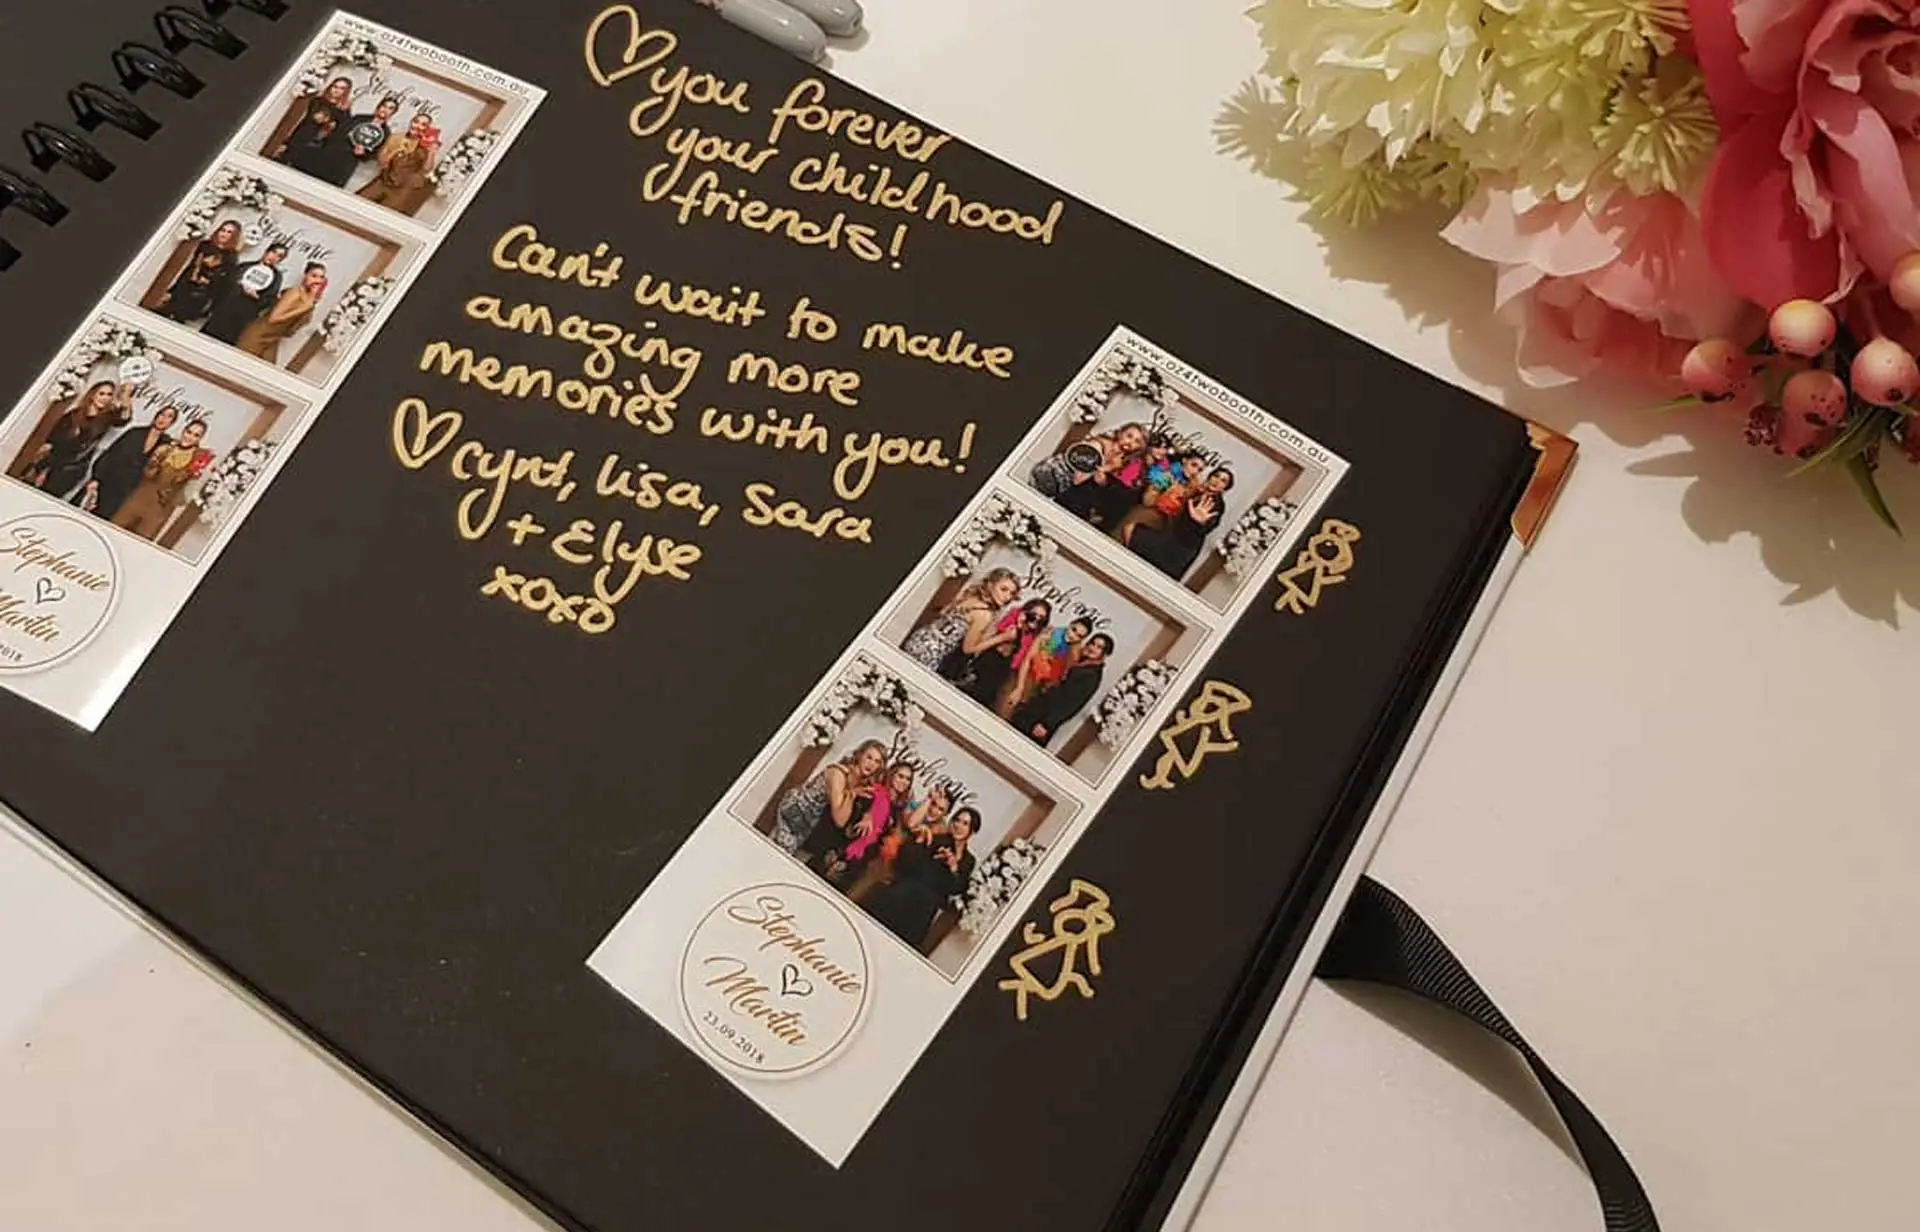 www.oz4twobooth.com.au
Stephanie
Stephanie
Stephanie
Stephanie
Martin
2018
♡ you forever
your childhood
friends!
Can't wait to make
amazing more
memories with you!
♡ Cynt, Lisa, Sara
+ Elyse
xoxo
www.oz4twobooth.com.au
Stephanie
Stephanie
Stephanie
Stephanie
♡
Martin
23.09.2018